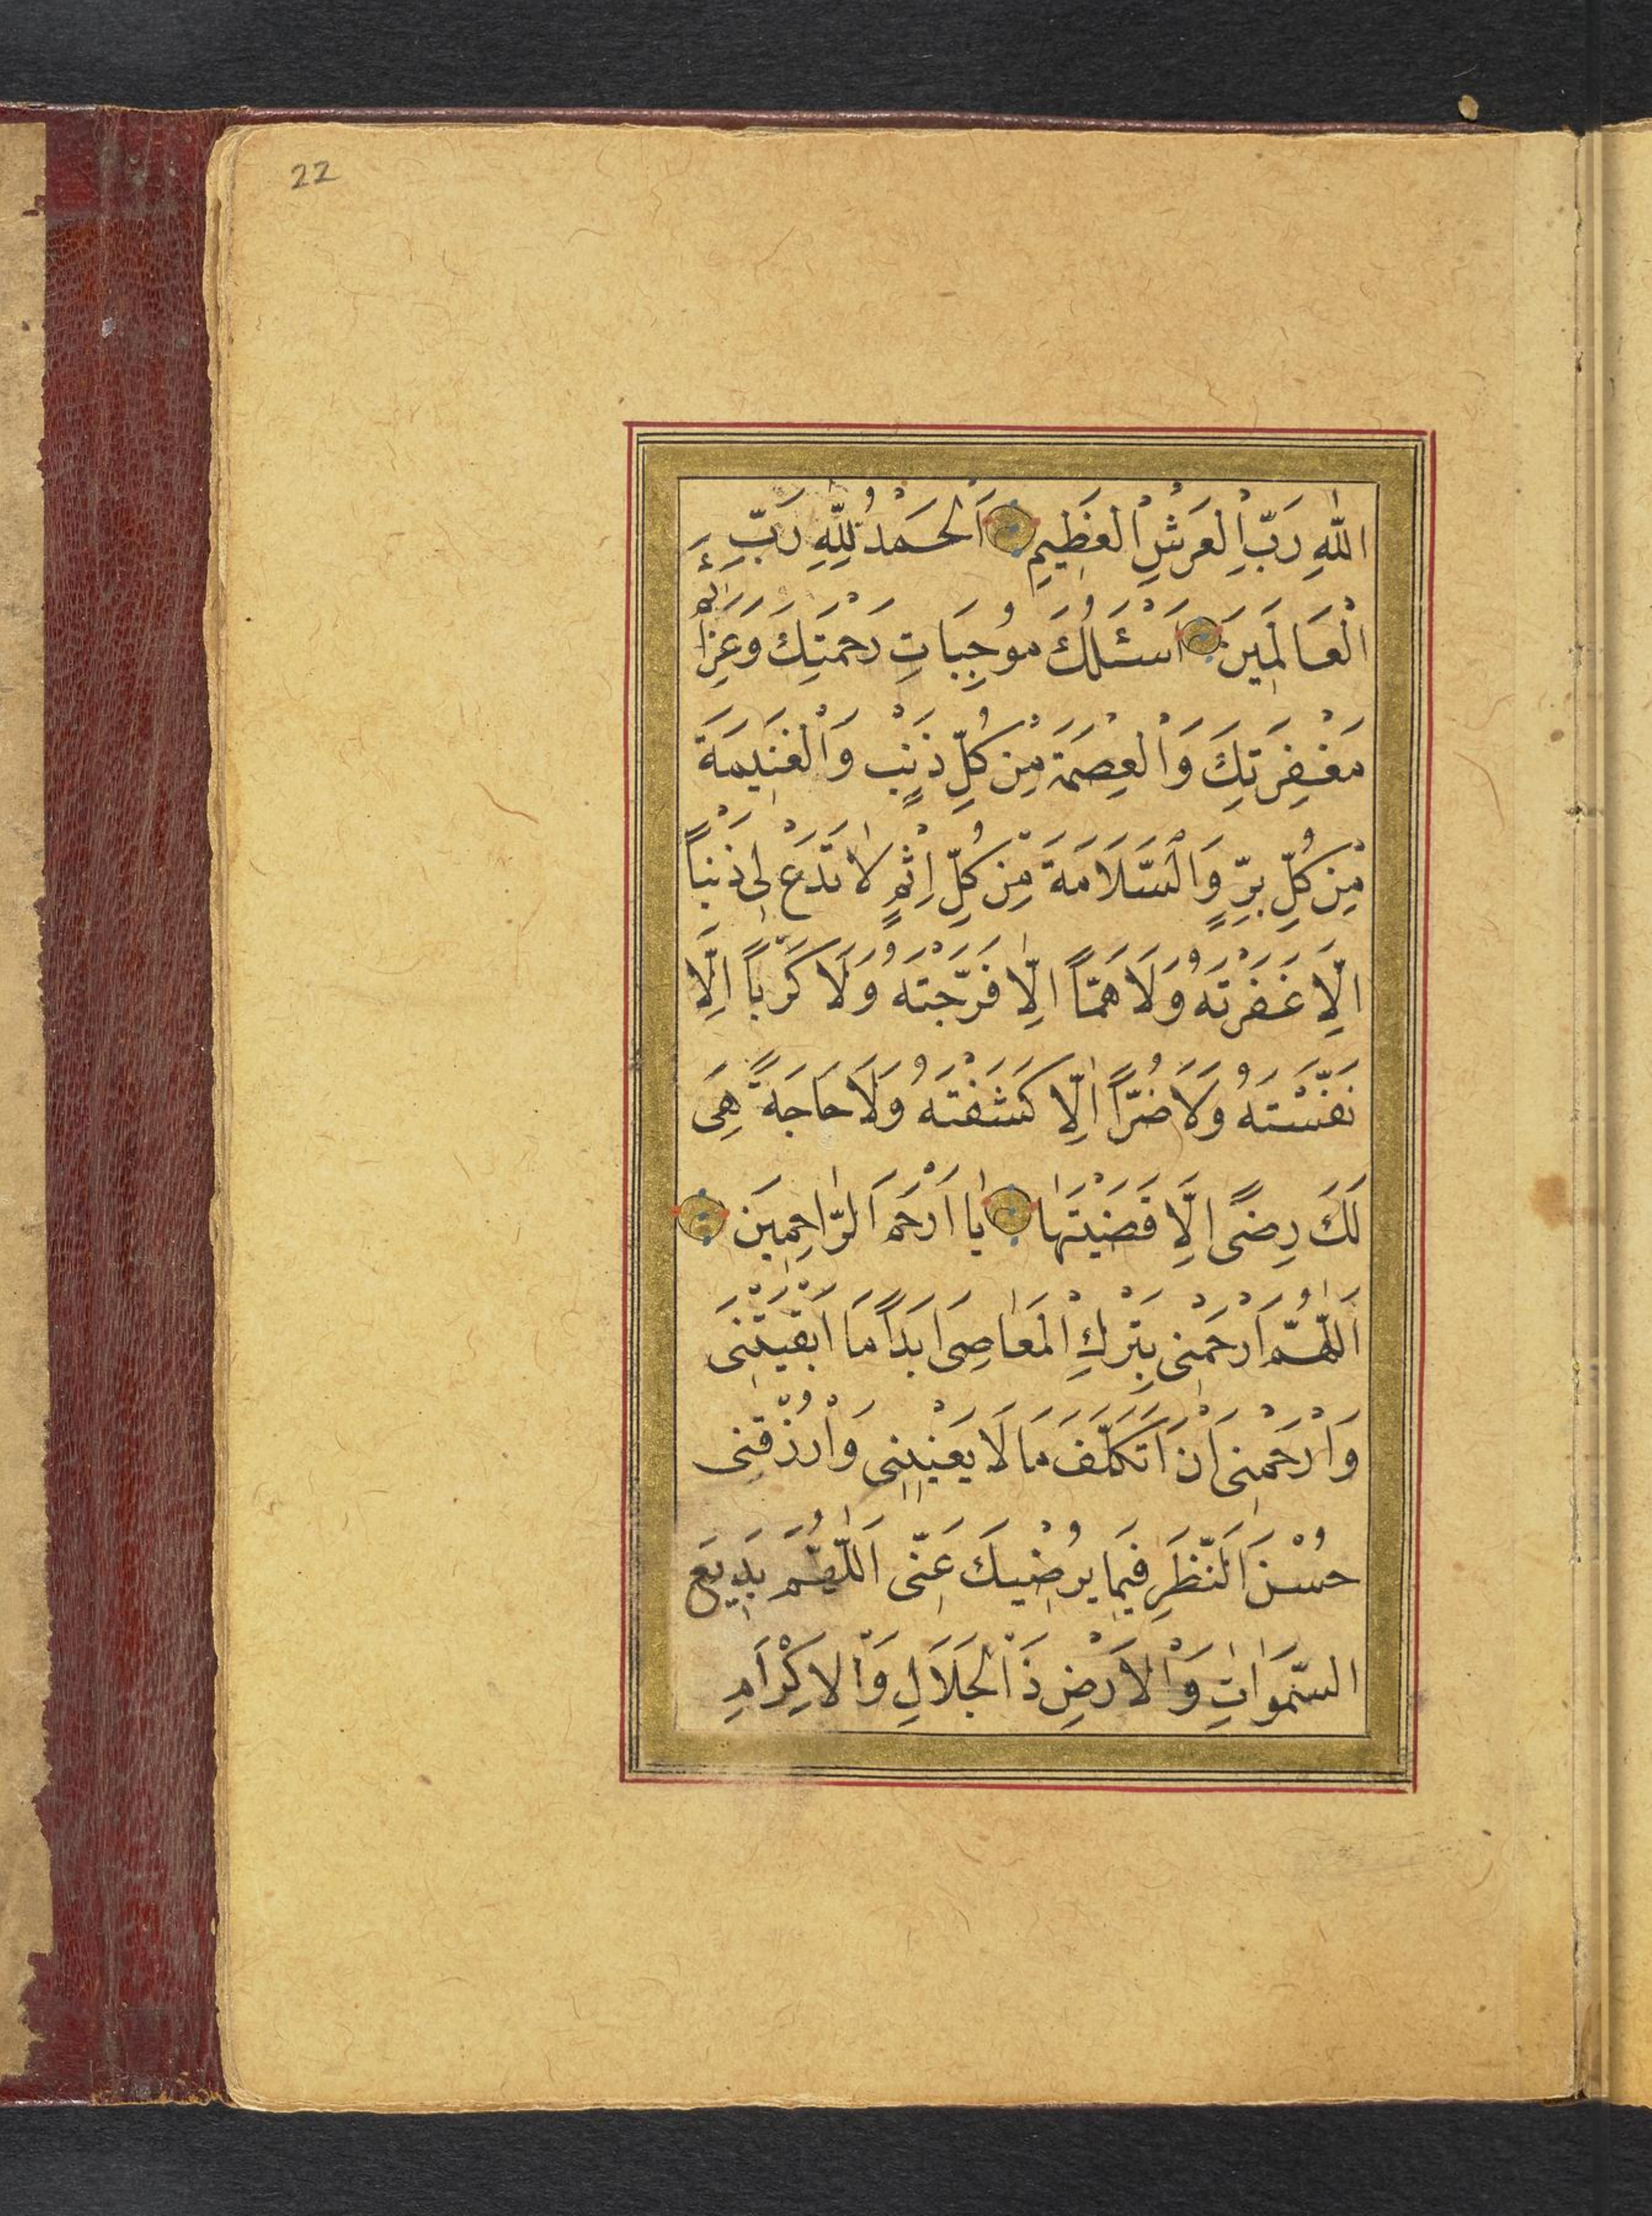 22
اللّٰهِ رَبِّ الْعَرْشِ الْعَظِيمِ اَلْحَمْدُ لِلّٰهِ رَبِّ
الْعَالَمِينَ اَسْئَلُكَ مُوجِبَاتِ رَحْمَتِكَ وَعَزَائِمَ
مَغْفِرَتِكَ وَالْعِصْمَةَ مِنْ كُلِّ ذَنْبٍ وَالْغَنِيمَةَ
مِنْ كُلِّ بِرٍّ وَالسَّلَامَةَ مِنْ كُلِّ اِثْمٍ لَا تَدَعْ لِى ذَنْباً
اِلَّا غَفَرْتَهُ وَلَا هَمّاً اِلَّا فَرَّجْتَهُ وَلَا كَرْباً اِلَّا
نَفَّسْتَهُ وَلَا ضُرّاً اِلَّا كَشَفْتَهُ وَلَا حَاجَةً هِىَ
لَكَ رِضًى اِلَّا قَضَيْتَهَا يَا اَرْحَمَ الرَّاحِمِينَ
اَللّٰهُمَّ ارْحَمْنِى بِتَرْكِ الْمَعَاصِى اَبَداً مَا اَبْقَيْتَنِى
وَارْحَمْنِى اَنْ اَتَكَلَّفَ مَا لَا يَعْنِينِى وَارْزُقْنِى
حُسْنَ النَّظَرِ فِيمَا يُرْضِيكَ عَنِّى اَللّٰهُمَّ بَدِيعَ
السَّمٰوَاتِ وَالْاَرْضِ ذَا الْجَلَالِ وَالْاِكْرَامِ